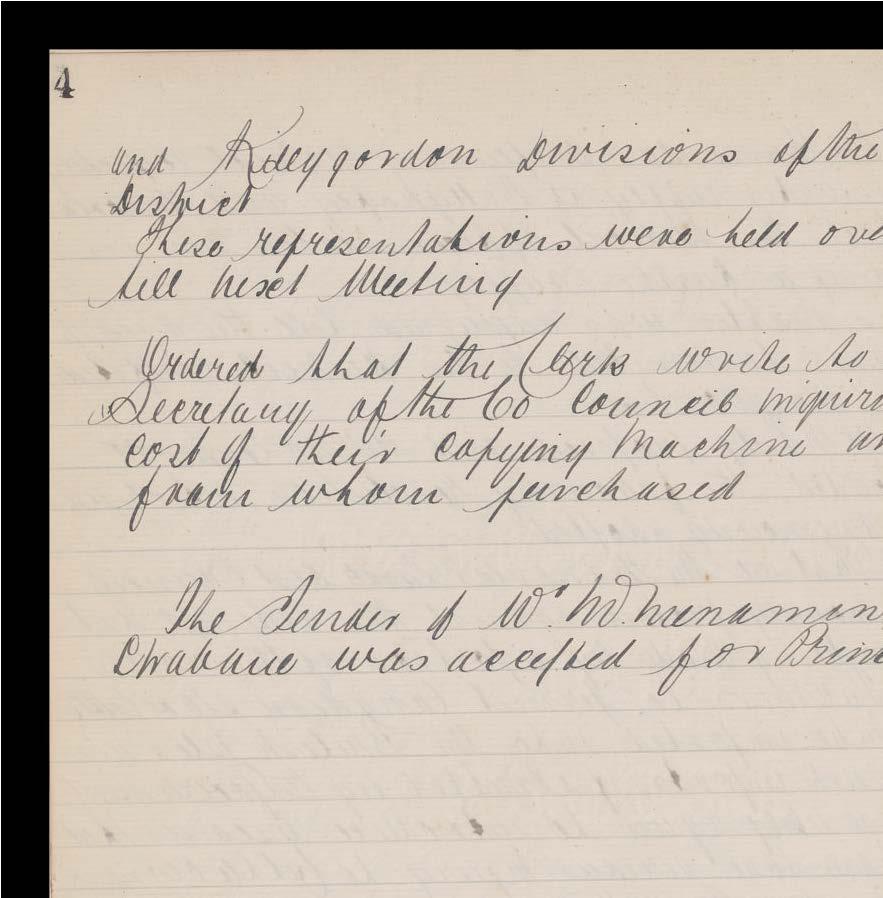 4
and Killygordon Divisions of the
District
These representations were held ove
till next Meeting
Ordered that the Clerk write to
Secretary of the Co Council inquiri
cost of their Copying Machine an
from whom purchased
The Tender of Wm McMenamin
was accepted for Prin